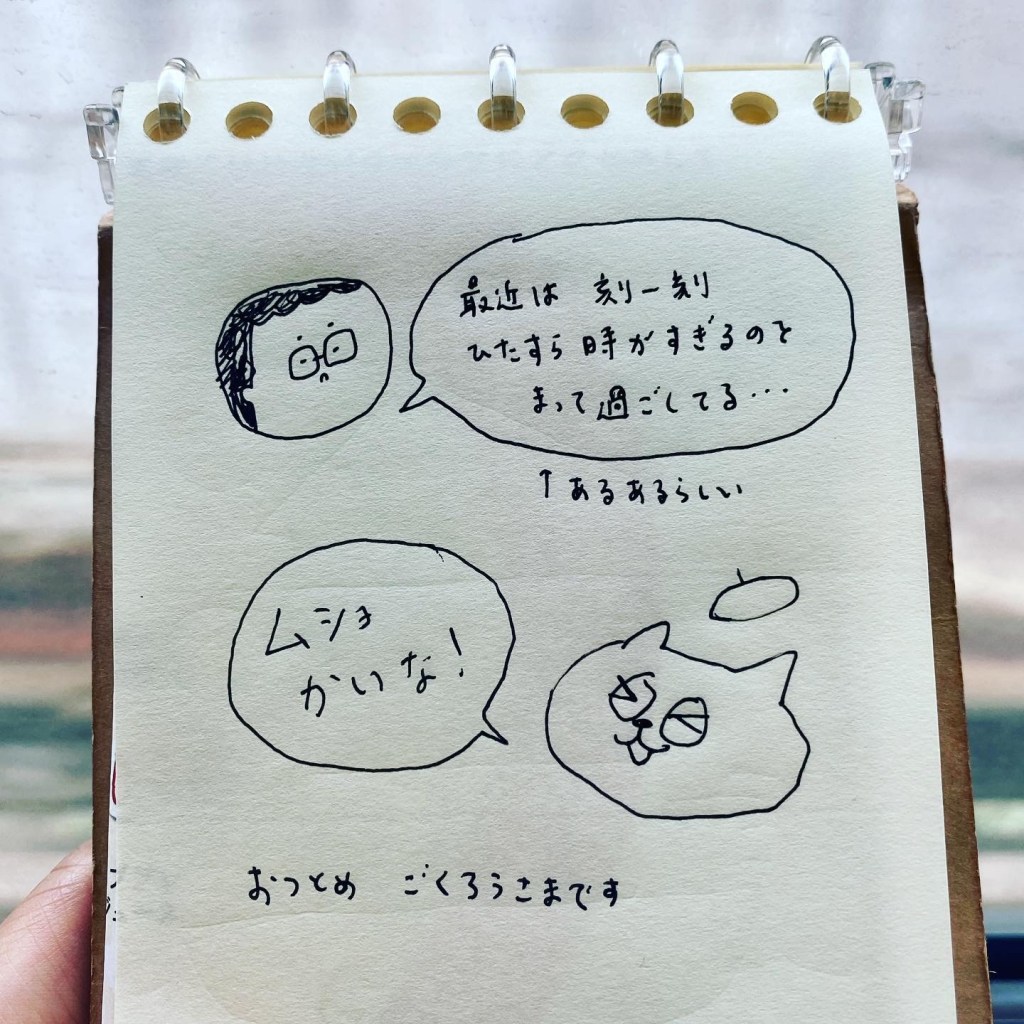 最近は 刻一刻
ひたすら 時がすぎるのを
まって過ごしてる…
↑あるあるらしい
ムショ
かいな！
おつとめ ごくろうさまです